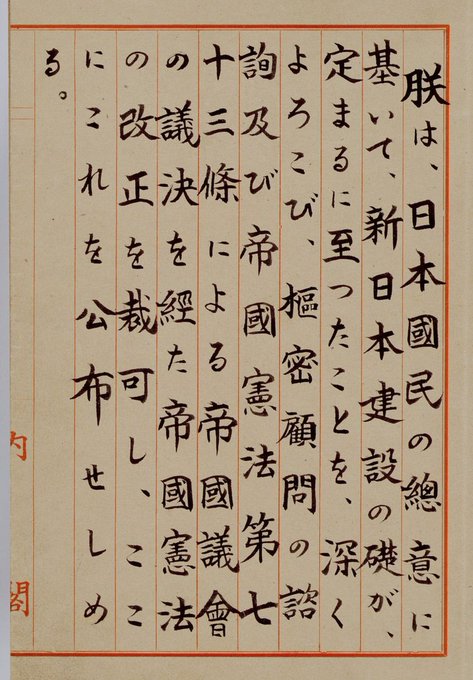 朕は、日本國民の總意に
基いて、新日本建設の礎が、
定まるに至つたことを、深く
よろこび、樞密顧問の諮
詢及び帝國憲法第七
十三條による帝國議會
の議決を経た帝國憲法
の改正を裁可し、ここ
にこれを公布せしめ
る。
内閣